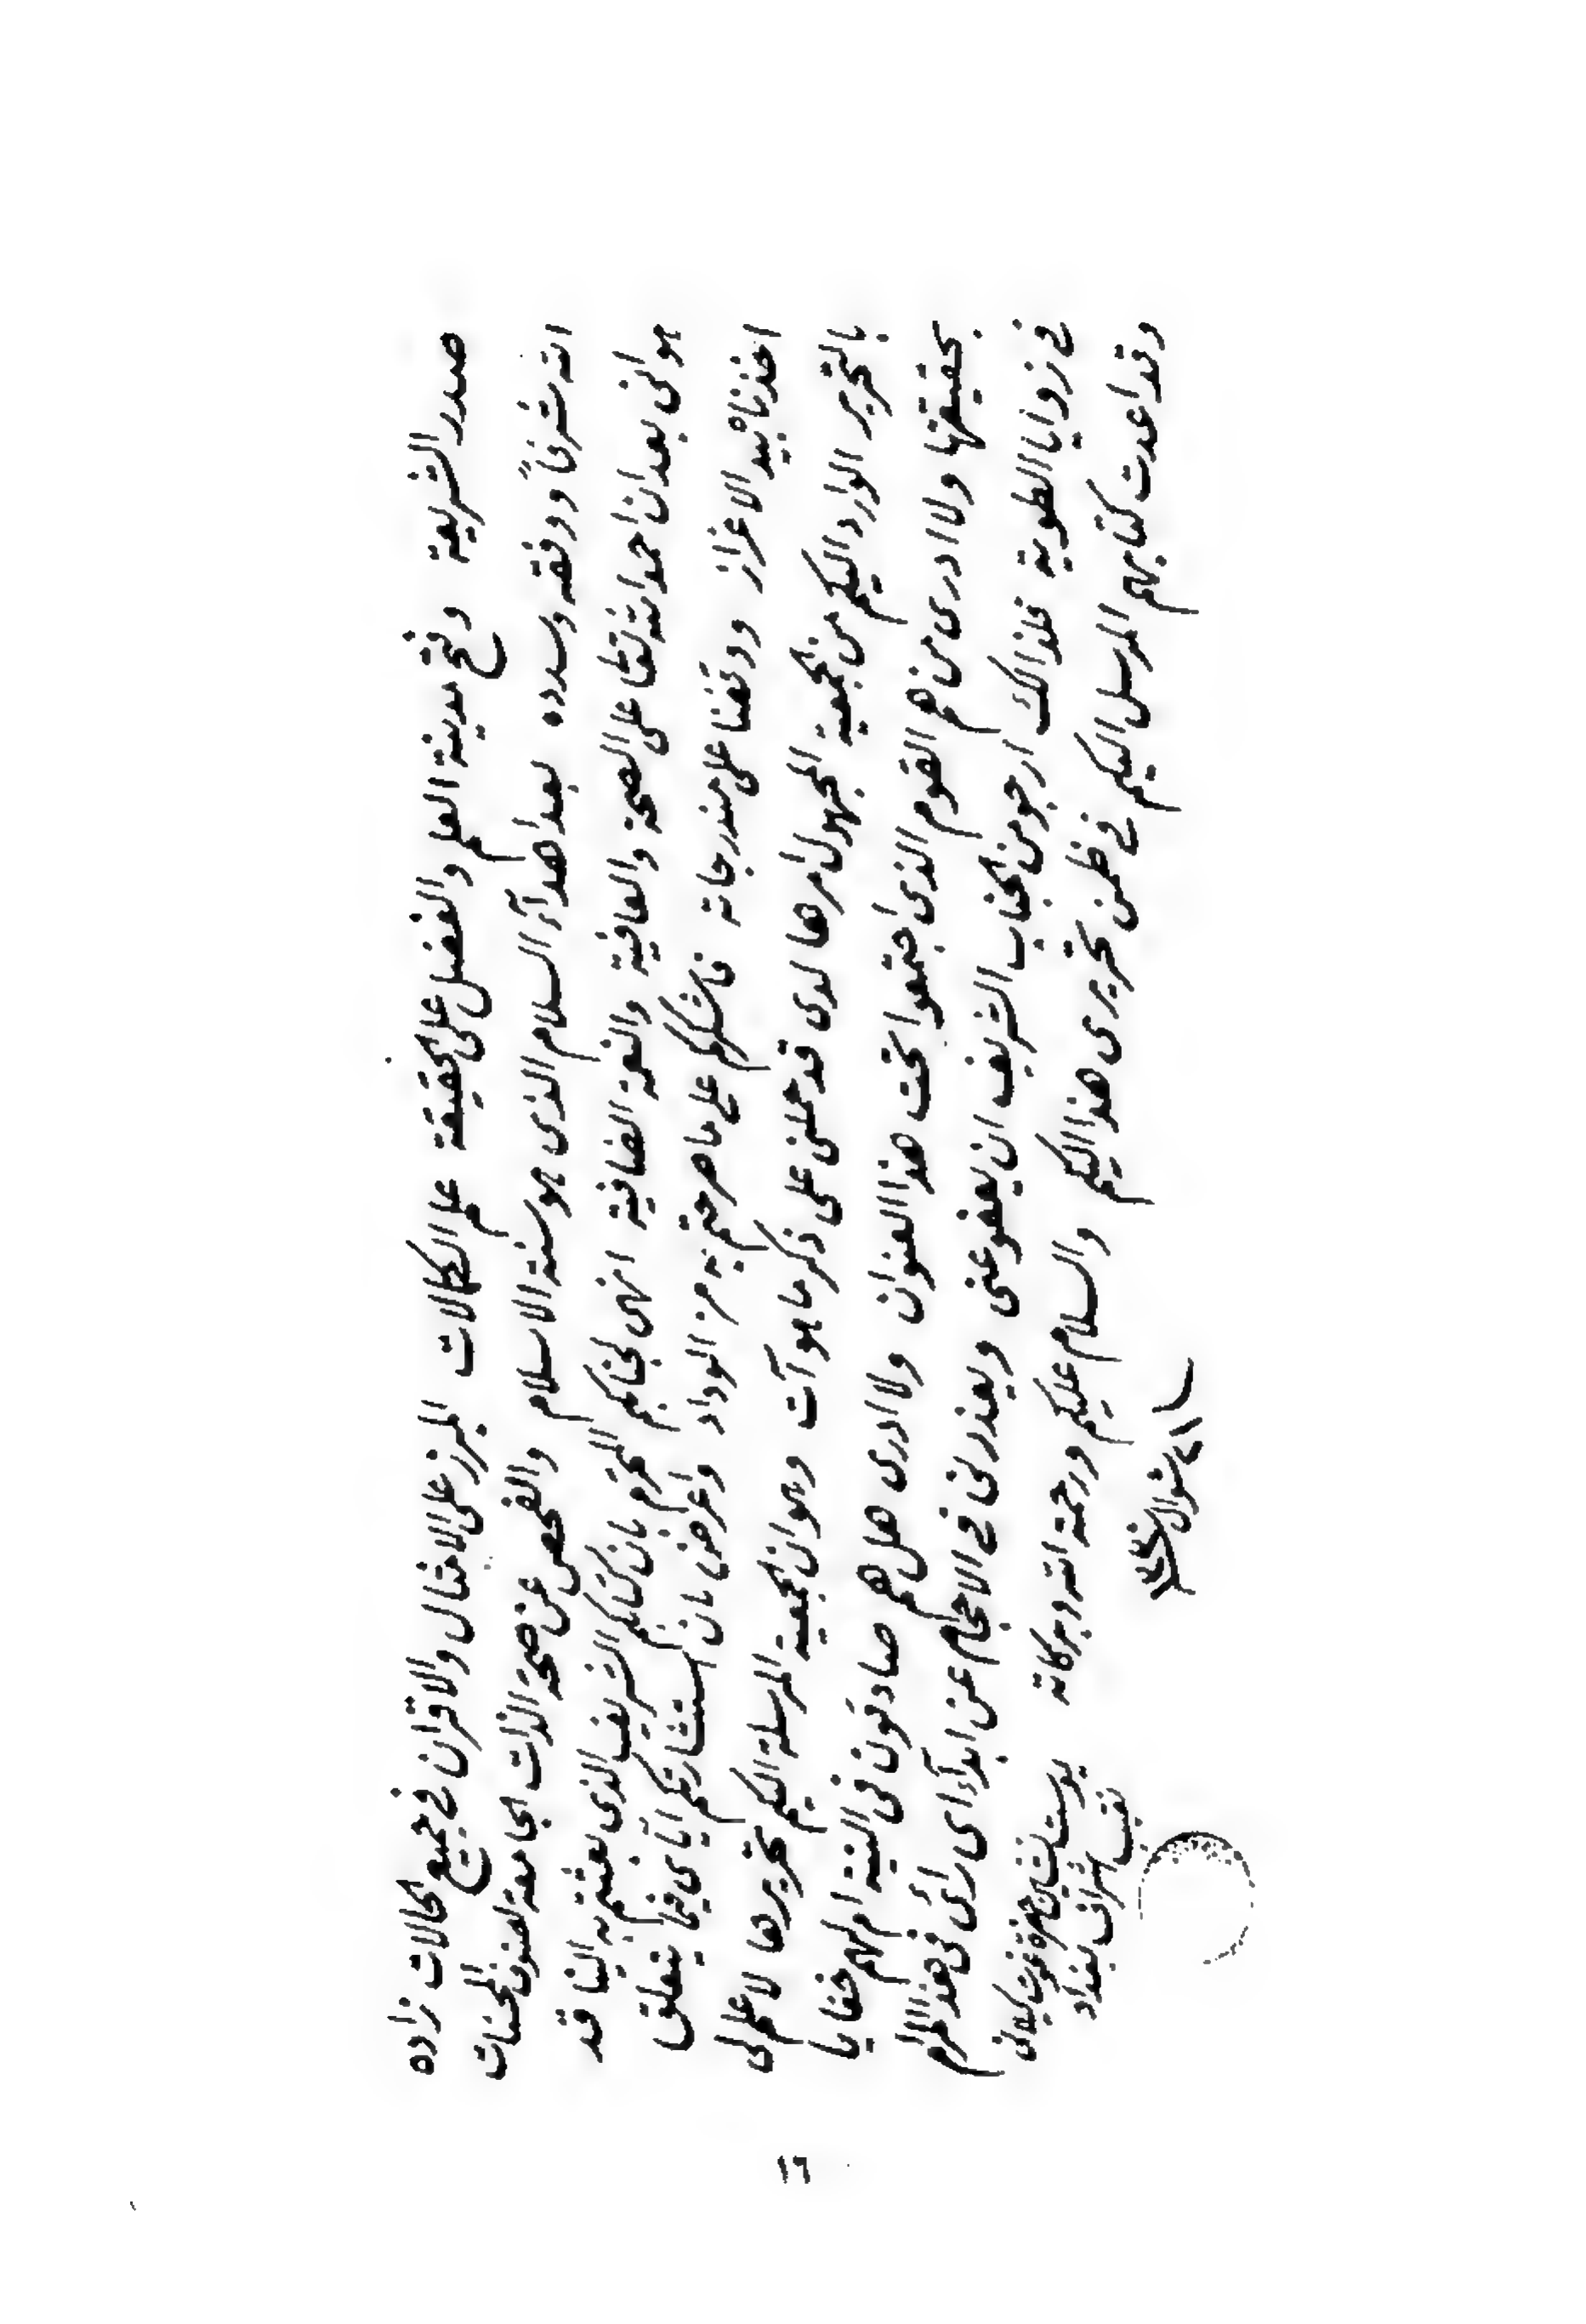 صدر الشريعة وفتح مدينة العلم والفضل على الحقيقة علم الكمالات المبرز على الامثال والاقران في جميع الحالات زاده
الله شرفاً ووفقه وسدده بعد اهدآء السلام الذى هو سنة الاسلام والفحص عن صحة الذات الجامعة لفنون المحسنات
هو انى بعد ان احمد الله تعالى على الصحة والعافية والنعمة الضافية انهى لجنابكم المحترم بان كتابكم الشريف الذى بعثتم به الينا قد
اخذناه بيد الاعزاز ووقفنا على مندرجاته فاشكركم على ما صرحتم به من الوداد واعرض بان استشارتكم اياي فيما يتعلق
بالتحرير الوارد اليكم من الجمعية المجهول امرها لدى قد حملنى على ذكر ما هو آت وهو ان الجمعية المرسلة اليكم تحريرها لا علم لى
بحقيقتها ولا ادرى من هم القوم الذى اجتمعوا تحت هذا العنوان ولا ادرى هل هم صادقون فى النية ام لهم خفايا
في زوايا الطوية فلذالك ارجو من الجناب الشريف ان يعفو عنى ويعذرنى في الاحجام عن ابدآء اى رأى فى هذا المرام
وقد اعدت كتابهم المرسل اليكم في ظمن تحريرى هذا اليكم والسلام عليكم ورحمة الله وبركاته
٢١ شوال
نقيب اشراف بغداد
١٦